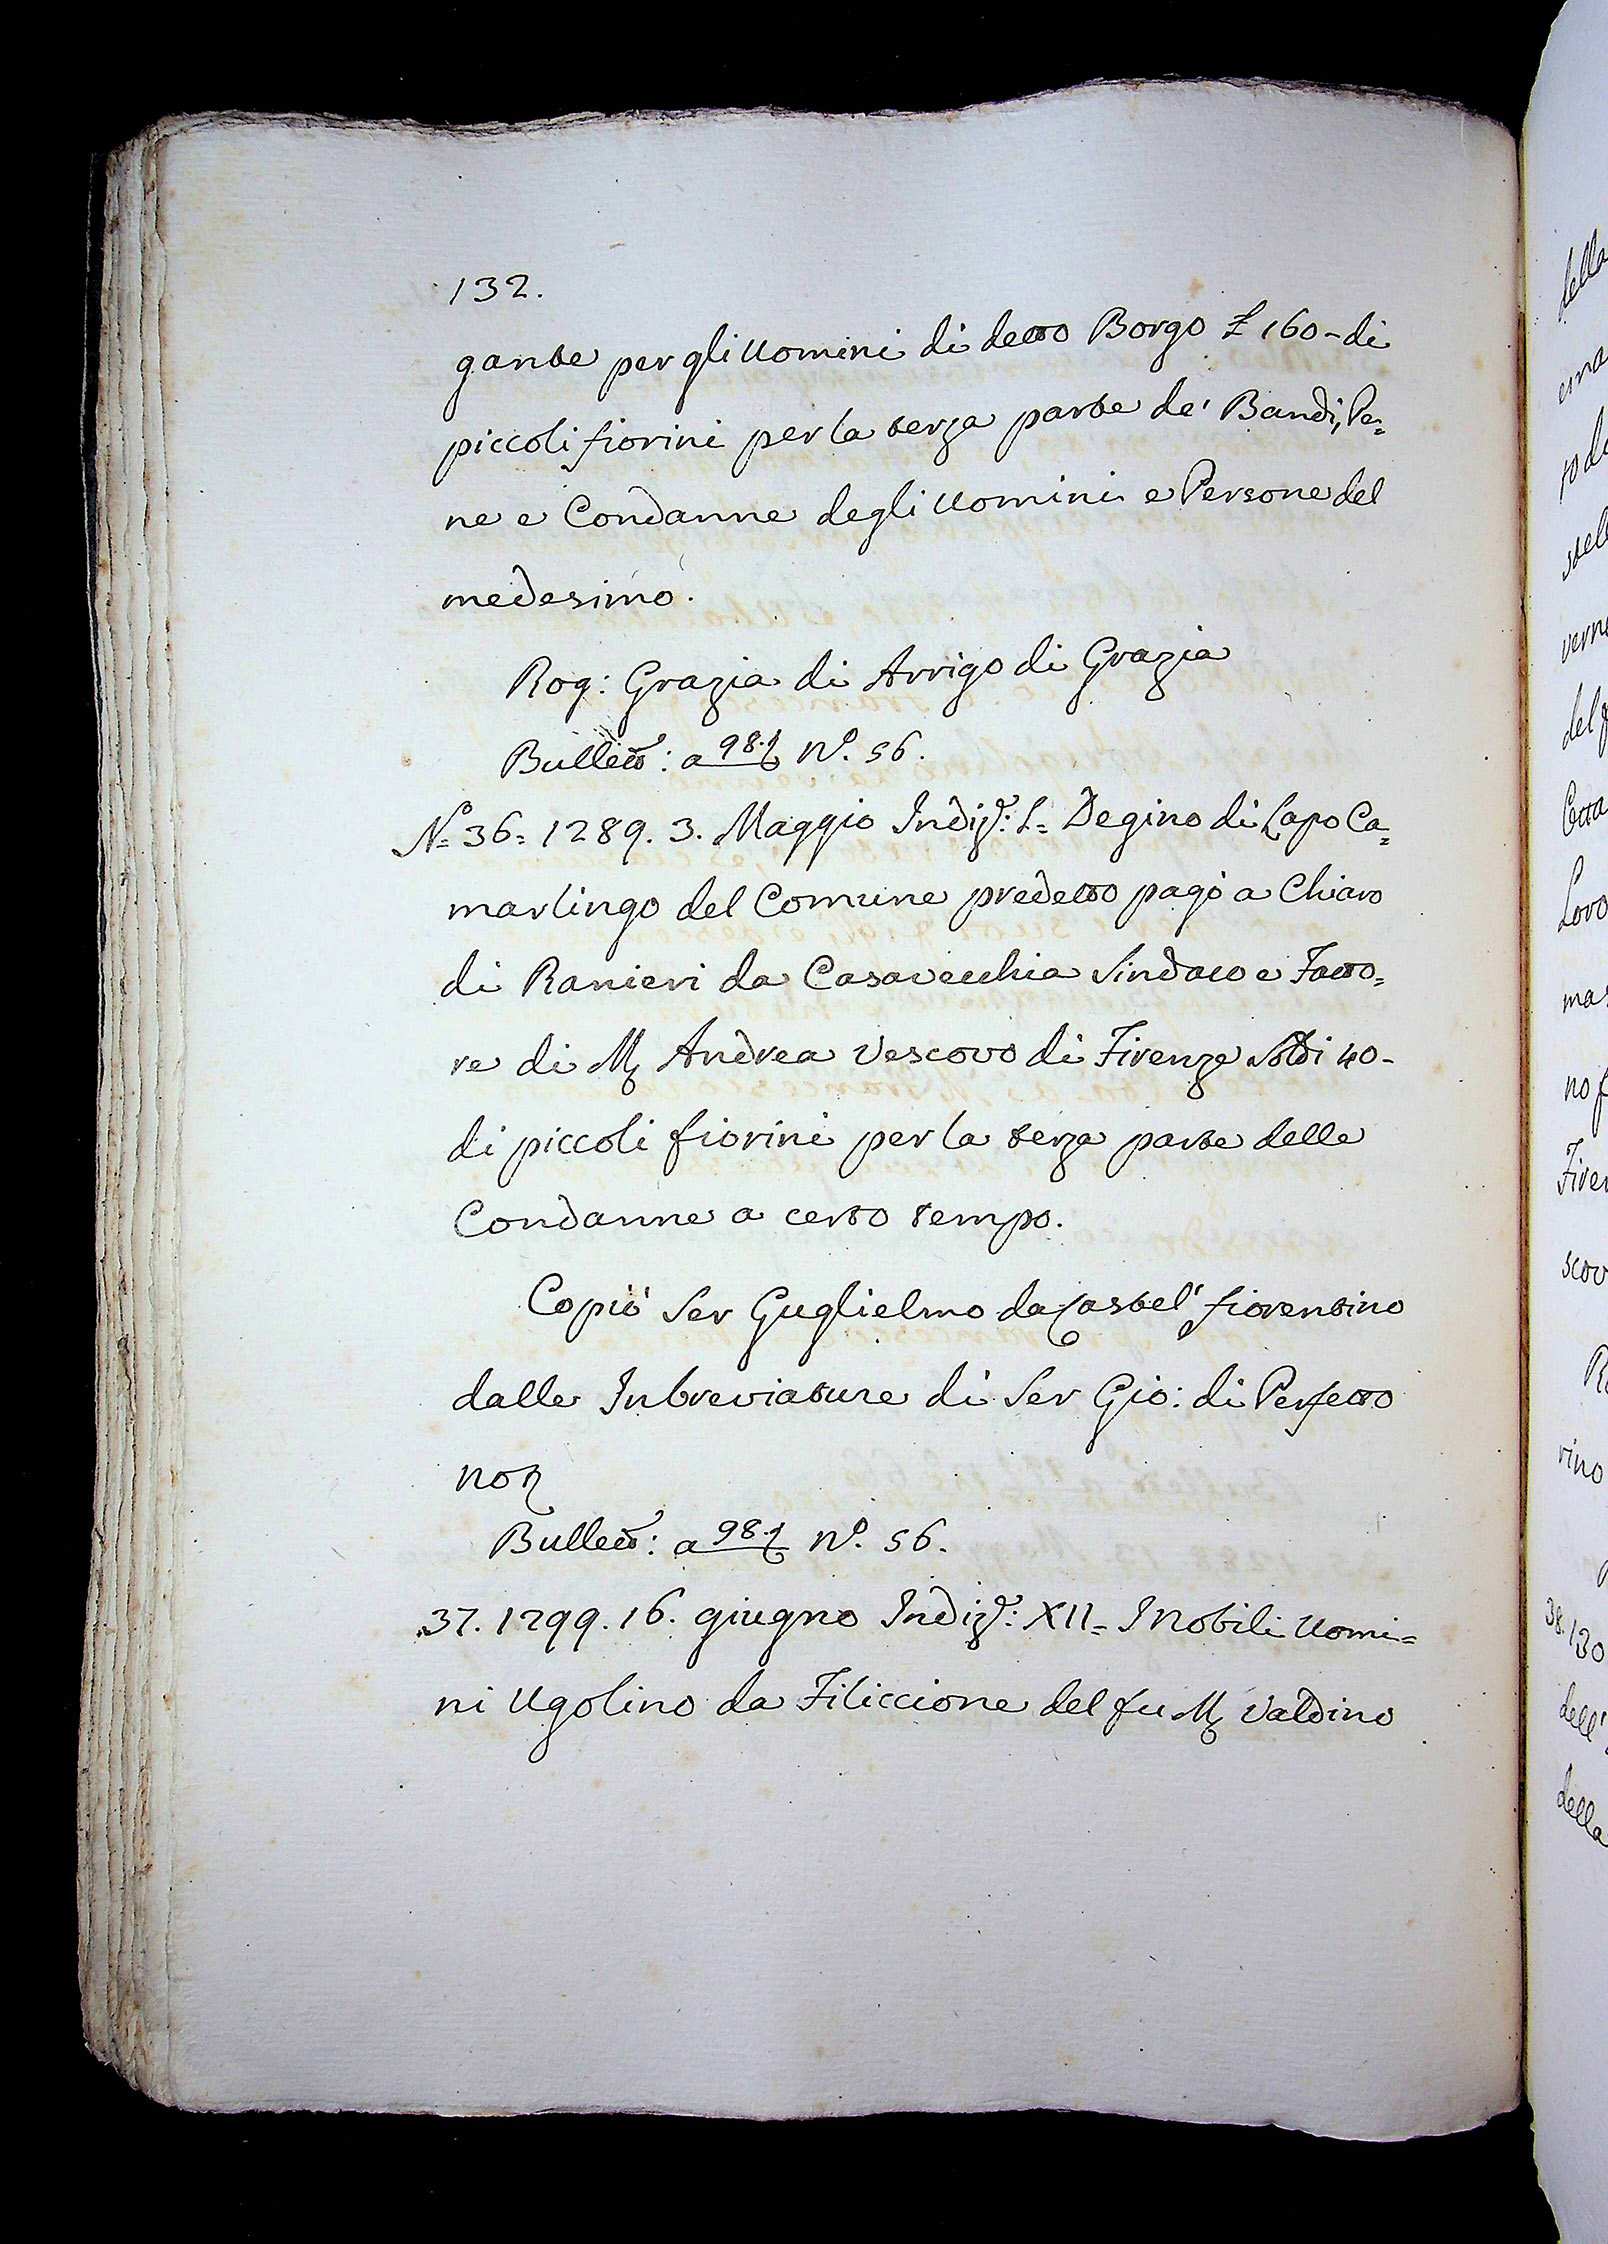 132.
gante per gli Uomini di detto Borgo £ 160 - di
piccoli fiorini per la terza parte de' Bandi, Pe=
ne e Condanne degli Uomini e Persone del
medesimo.
Rog: Grazia di Arrigo di Grazia
Bullett: a 98. N.° 56.
N= 36= 1289. 3. Maggio Indiz: Degino di Lapo Ca=
marlingo del Comune predetto pagò a Chiaro
di Ranieri da Casavecchia Sindaco e Fatto=
re di M Andrea Vescovo di Firenze Soldi 40-
di piccoli fiorini per la terza parte delle
Condanne a certo tempo.
Copiò Ser Guglielmo da Castel' fiorentino
dalle Inbreviature di Ser Gio: di Perfetto
not
Bullett: a 98. N.° 56.
37. 1299. 16. giugno Indiz: XII= I Nobili Uomi=
ni Ugolino da Filiccione del fu M Valdino
della
Loro
no f
Firen
scov
rino
38. 130
dell'
della